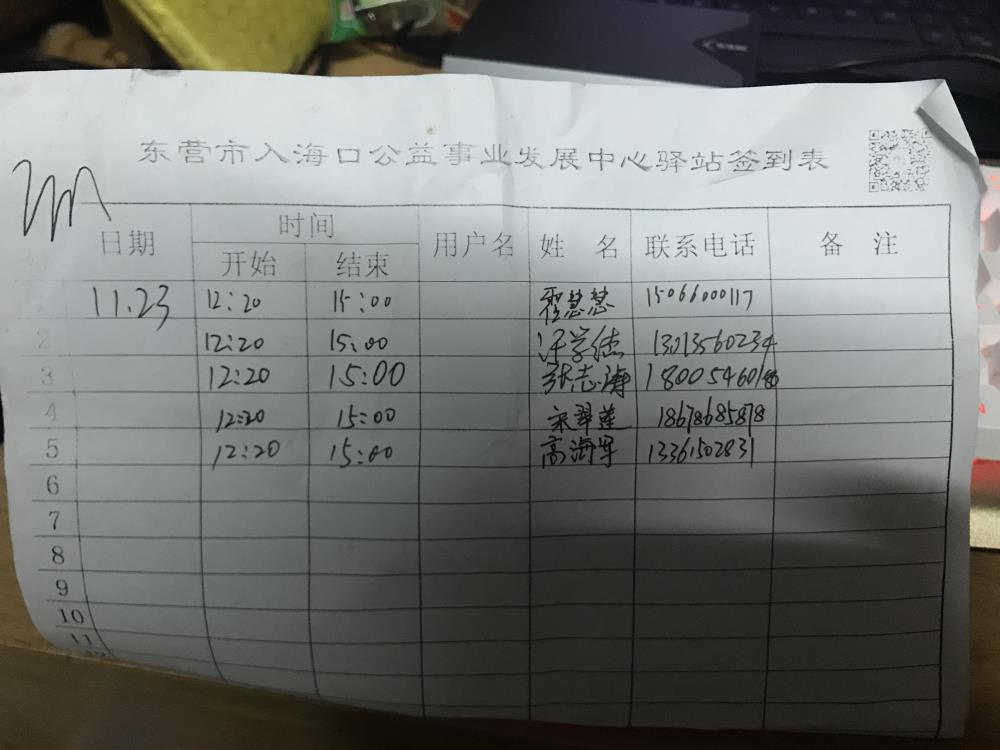 东营市入海口公益事业发展中心驿站签到表
日期 时间 用户名 姓 名 联系电话 备 注
开始 结束
1 11.23 12:20 15:00 霍慧慧 15066000117
2 12:20 15:00 学 13013560234
3 12:20 15:00 张志海
4 12:20 15:00 宋翠莲 18678685878
5 12:20 15:00 高海军 13361502831
6
7
8
9
10
11